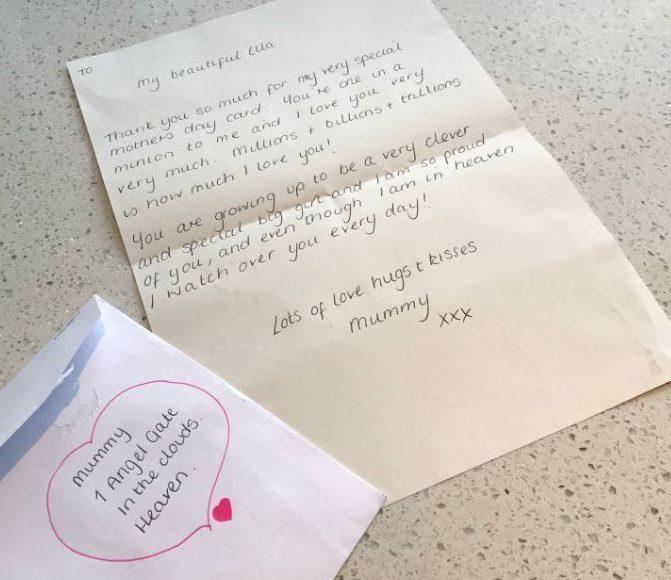 To
My beautiful Ella
Thank you so much for my very special
mothers day card. You're one in a
million to me and I love you very
very much. Millions + billions + trillions
is how much I love you!
You are growing up to be a very clever
and special big girl and I am so proud
of you, and even though I am in heaven
I watch over you every day!
Lots of love hugs + kisses
Mummy xxx
Mummy
1 Angel Gate
In the clouds.
Heaven.